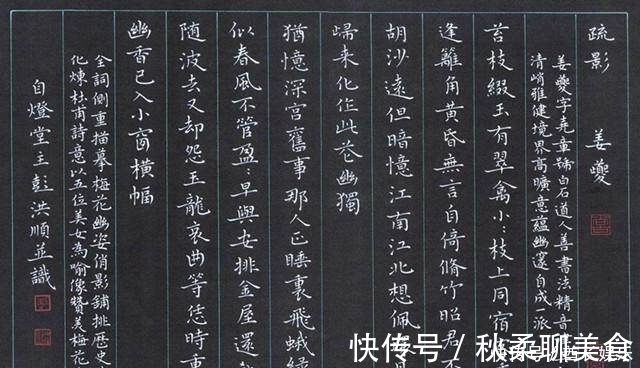 疏影 姜夔
姜夔字堯章號白石道人善書法精音
清峭雅健境界高曠意蘊幽邃自成一派
苔枝綴玉有翠禽小〻枝上同宿
逢籬角黃昏無言自倚脩竹昭君
胡沙遠但暗憶江南江北想佩
歸来化作此花幽獨
猶憶深宮舊事那人正睡裏飛蛾綠
似春風不管盈〻早與安排金屋還
随波去又却怨玉龍哀曲等恁時重
幽香已入小窗橫幅
全詞側重描摹梅花幽姿俏影鋪排歷史
化煉杜甫詩意以五位美女為喻像贊美梅花
自燈堂主彭洪順並識
快传号 / 秋柔聊美食